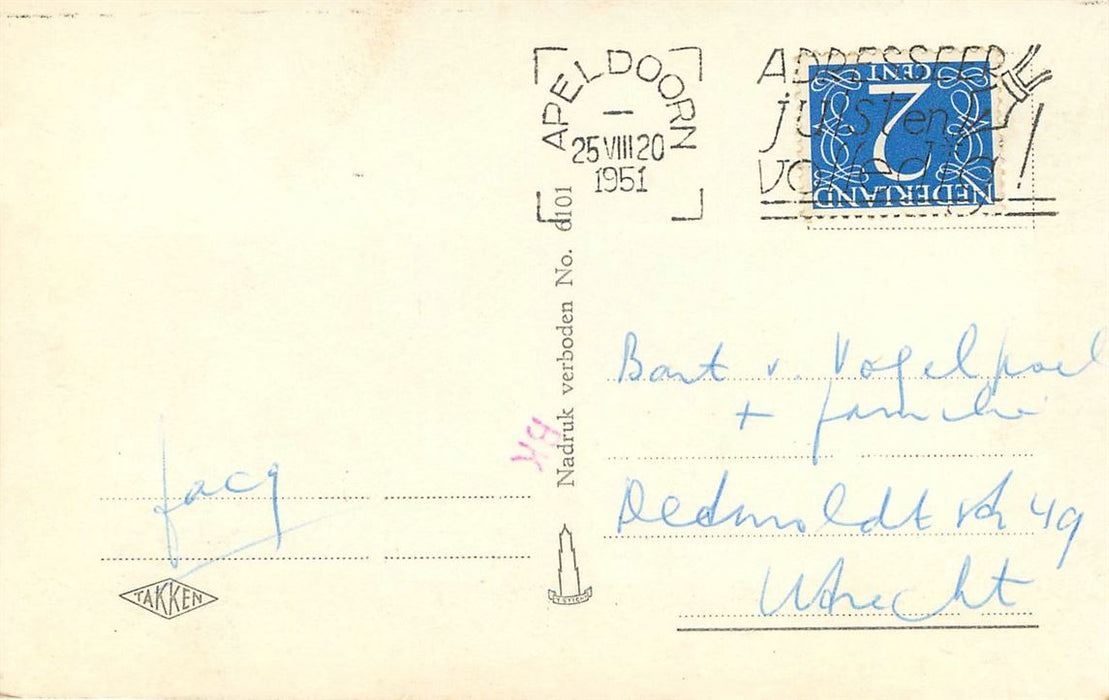 APELDOORN
25 VIII 20
1951
ADRESSEER
juist en
volledig!
NEDERLAND
2
CENT
Nadruk verboden No. 6101
44
Bart v. Vogelpoel
+ familie
49
Utrecht
Jacq
TAKKEN